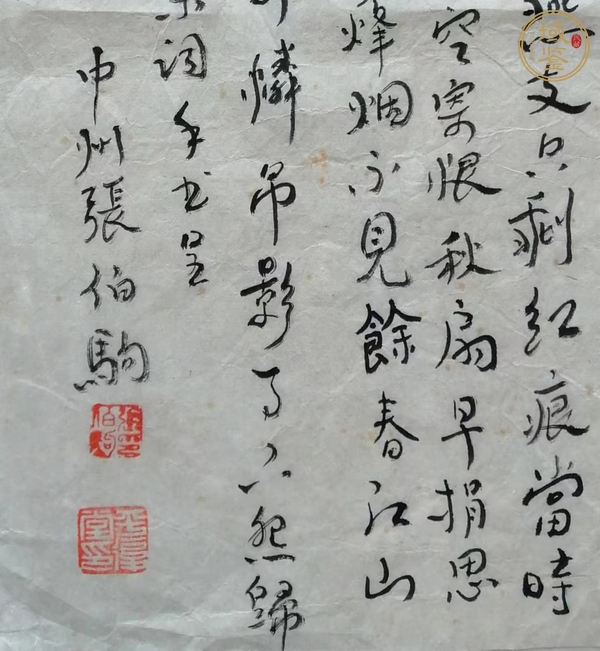 支只剩红痕當時
空寄恨秋扇早捐思
烽烟不見餘春江山
憐吊影了不怨歸
詞手书呈
中州張伯駒
平復堂印